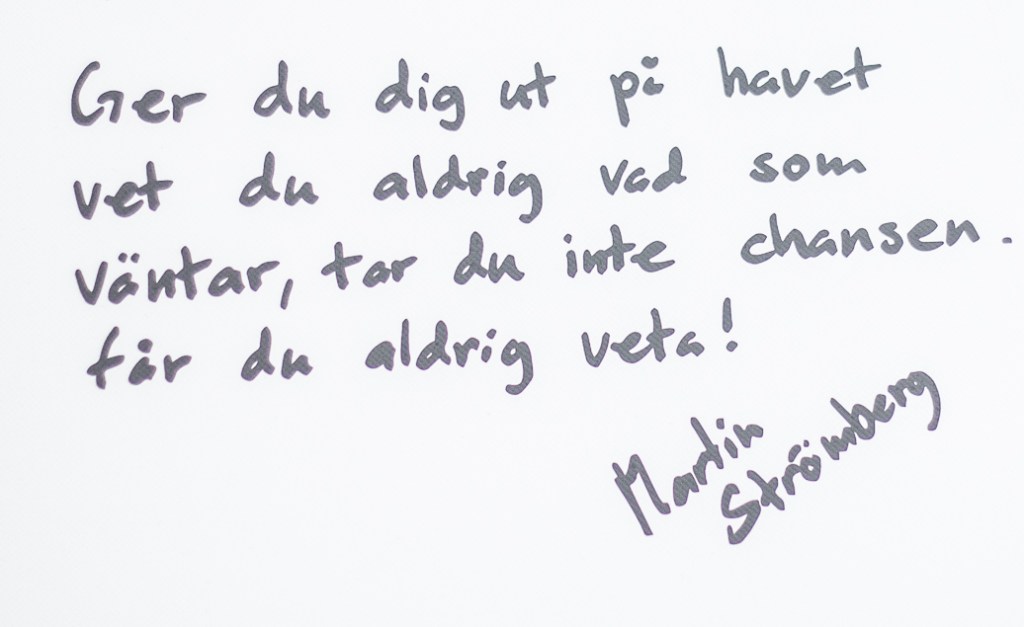 Ger du dig ut på havet
vet du aldrig vad som
väntar, tar du inte chansen.
får du aldrig veta!
Martin
Strömberg